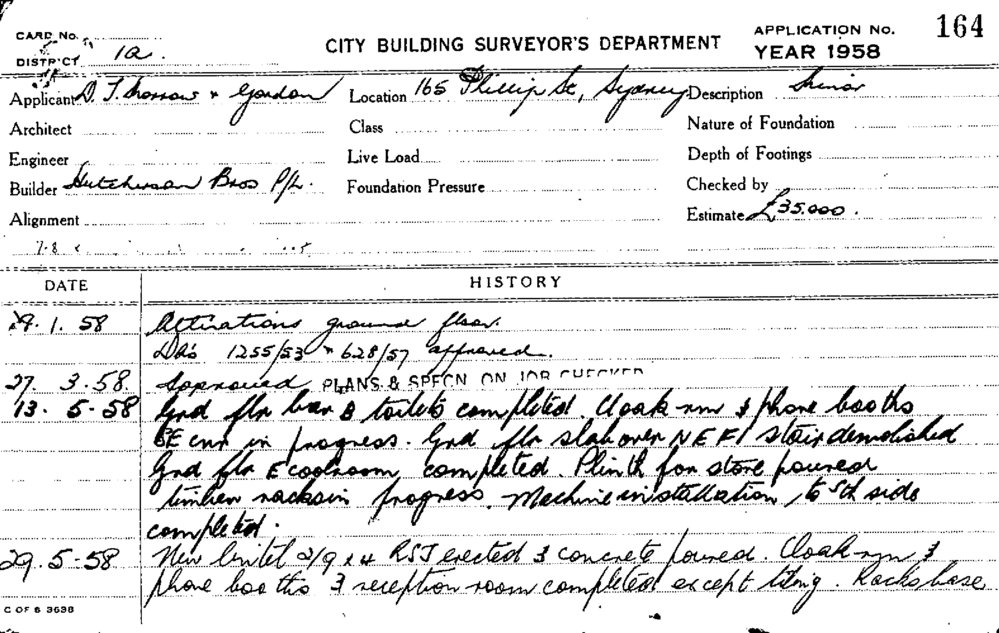 CARD No.
DISTRICT 1a.
CITY BUILDING SURVEYOR'S DEPARTMENT
APPLICATION No. 164
YEAR 1958
Applicant D. T. Morrow & Gordon Location 165 Phillip St, Sydney Description Minor
Architect Class Nature of Foundation
Engineer Live Load Depth of Footings
Builder Hutcherson Bros P/L. Foundation Pressure Checked by
Alignment Estimate £35.000.
DATE HISTORY
29. 1. 58 Alterations ground floor.
DA's 1255/53 & 628/57 approved.
27. 3. 58. Approved PLANS & SPECN ON JOB CHECKED
13. 5. 58 Grd flr bar & toilets completed. Cloak rm & phone booths
SE cnr in progress. Grd flr slab over N E F/ stair demolished
Grd flr E coolroom completed. Plinth for store poured
timber racks in progress. Machine installation to Sth side
completed.
29. 5. 58 New lintel 2/9 x 4 RSJ erected & concrete poured. Cloak rm &
phone booths & reception room completed except tiling. Racks base
C OF S 3638